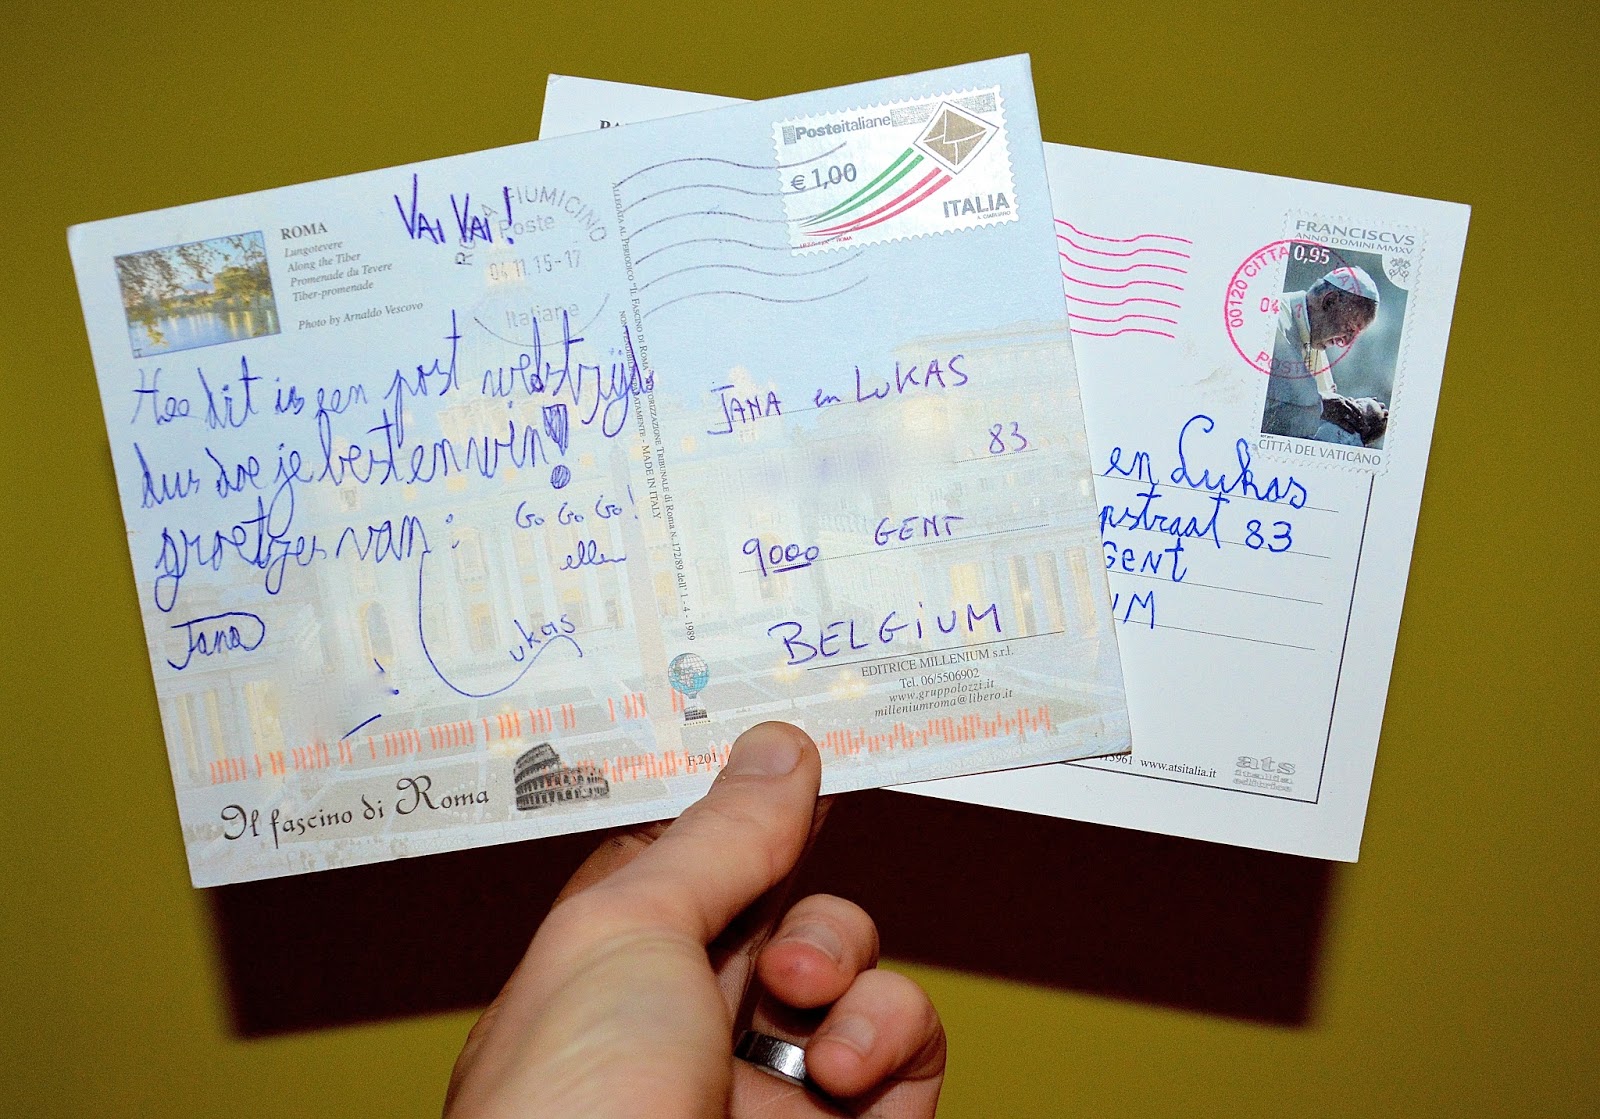 ROMA
Lungotevere
Along the Tiber
Promenade du Tevere
Tiber-promenade
Photo by Arnaldo Vescovo
VAi VAi!
FIUMICINO
Poste
04.11.15-17
Italiane
Posteitaliane
€ 1,00
ITALIA
Hoo dit is een post wedstrijd
dus doe je best en win!
groetjes van:
Jana
Lukas
Go Go Go!
ellen
ALLEGATA AL PERIODICO "IL FASCINO DI ROMA" AUTORIZZAZIONE TRIBUNALE di Roma N. 172/89 dell' 1 - 4 - 1989
NON VENDIBILE SEPARATAMENTE - MADE IN ITALY
JANA en LUKAS
83
9000 GENT
BELGiUM
EDITRICE MILLENIUM s.r.l.
Tel. 06/5506902
www.gruppolozzi.it
milleniumroma@libero.it
F.201
Il fascino di Roma
FRANCISCVS
ANNO DOMINI MMXV
0,95
CITTÀ DEL VATICANO
00120 CITTA
04
POSTE
en Lukas
pstraat 83
Gent
UM
13961 www.atsitalia.it
ats
italia
editrice